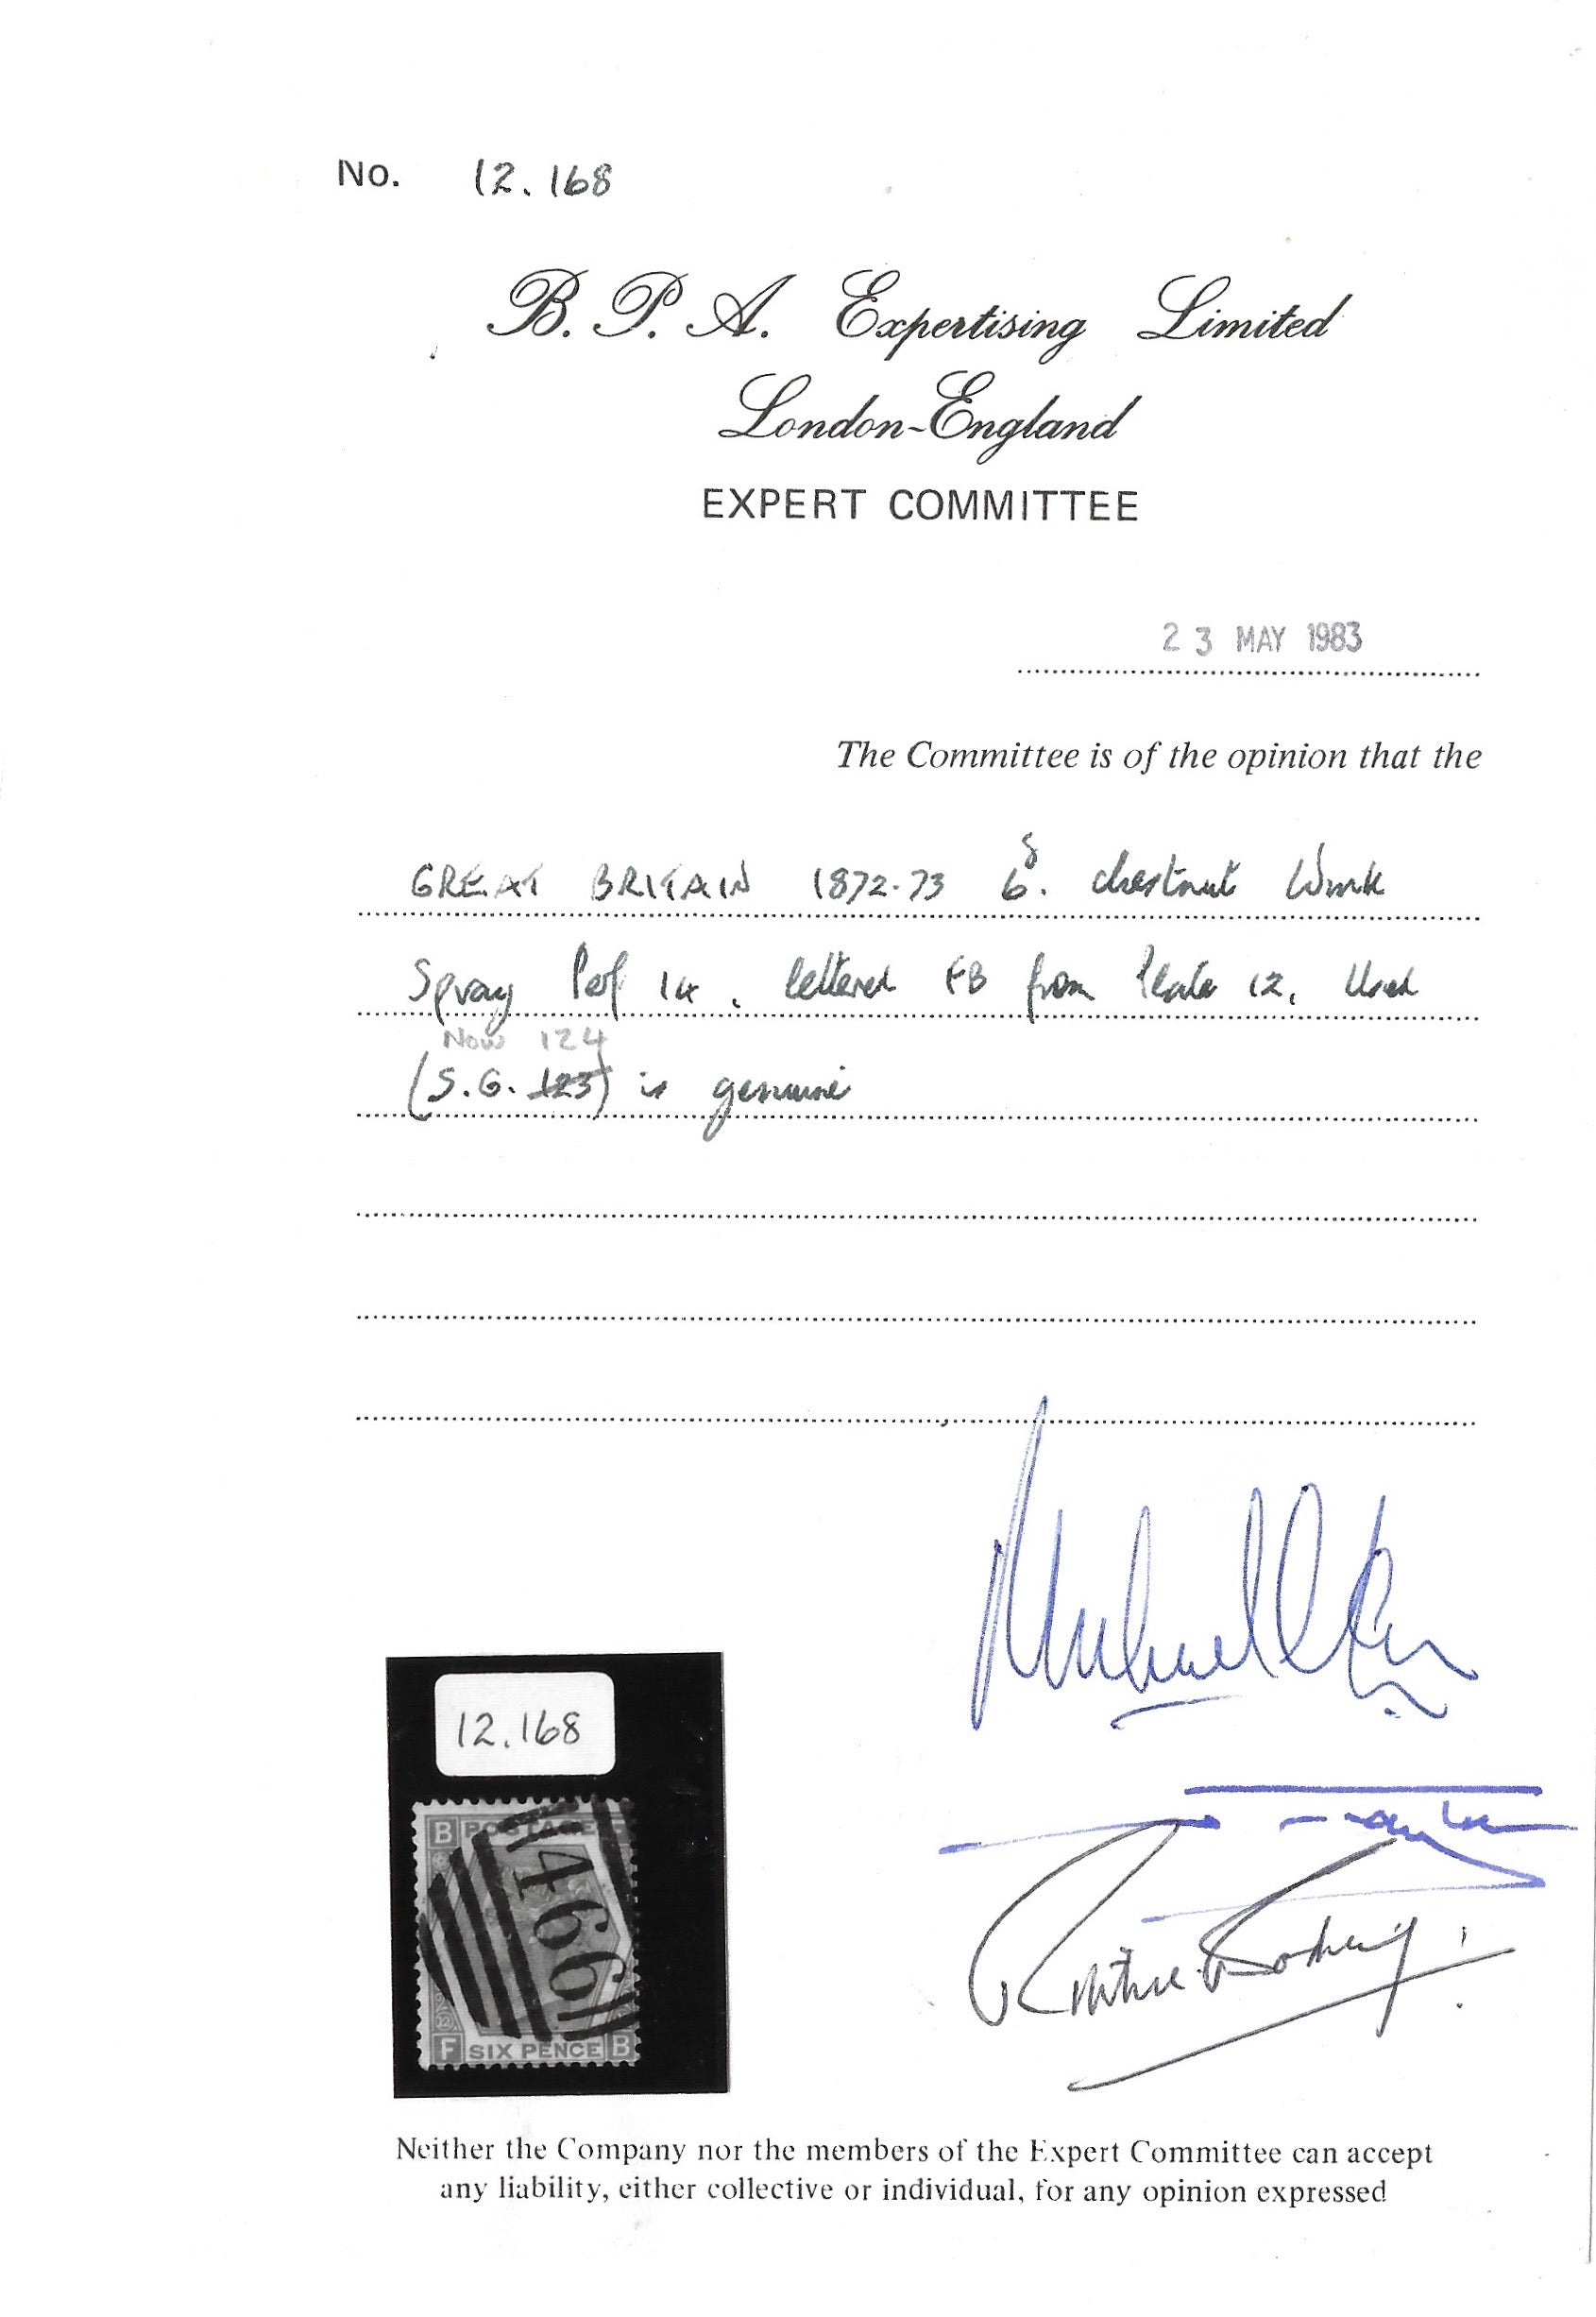 No. 12.168
B. P. A. Expertising Limited
London-England
EXPERT COMMITTEE
23 MAY 1983
The Committee is of the opinion that the
GREAT BRITAIN 1872-73 6d. chestnut Wmk
Spray Perf 14, lettered FB from Plate 12, Used
Now 124
(S.G. 123) is genuine
12.168
B POSTAGE F
466
12
F SIX PENCE B
Neither the Company nor the members of the Expert Committee can accept
any liability, either collective or individual, for any opinion expressed